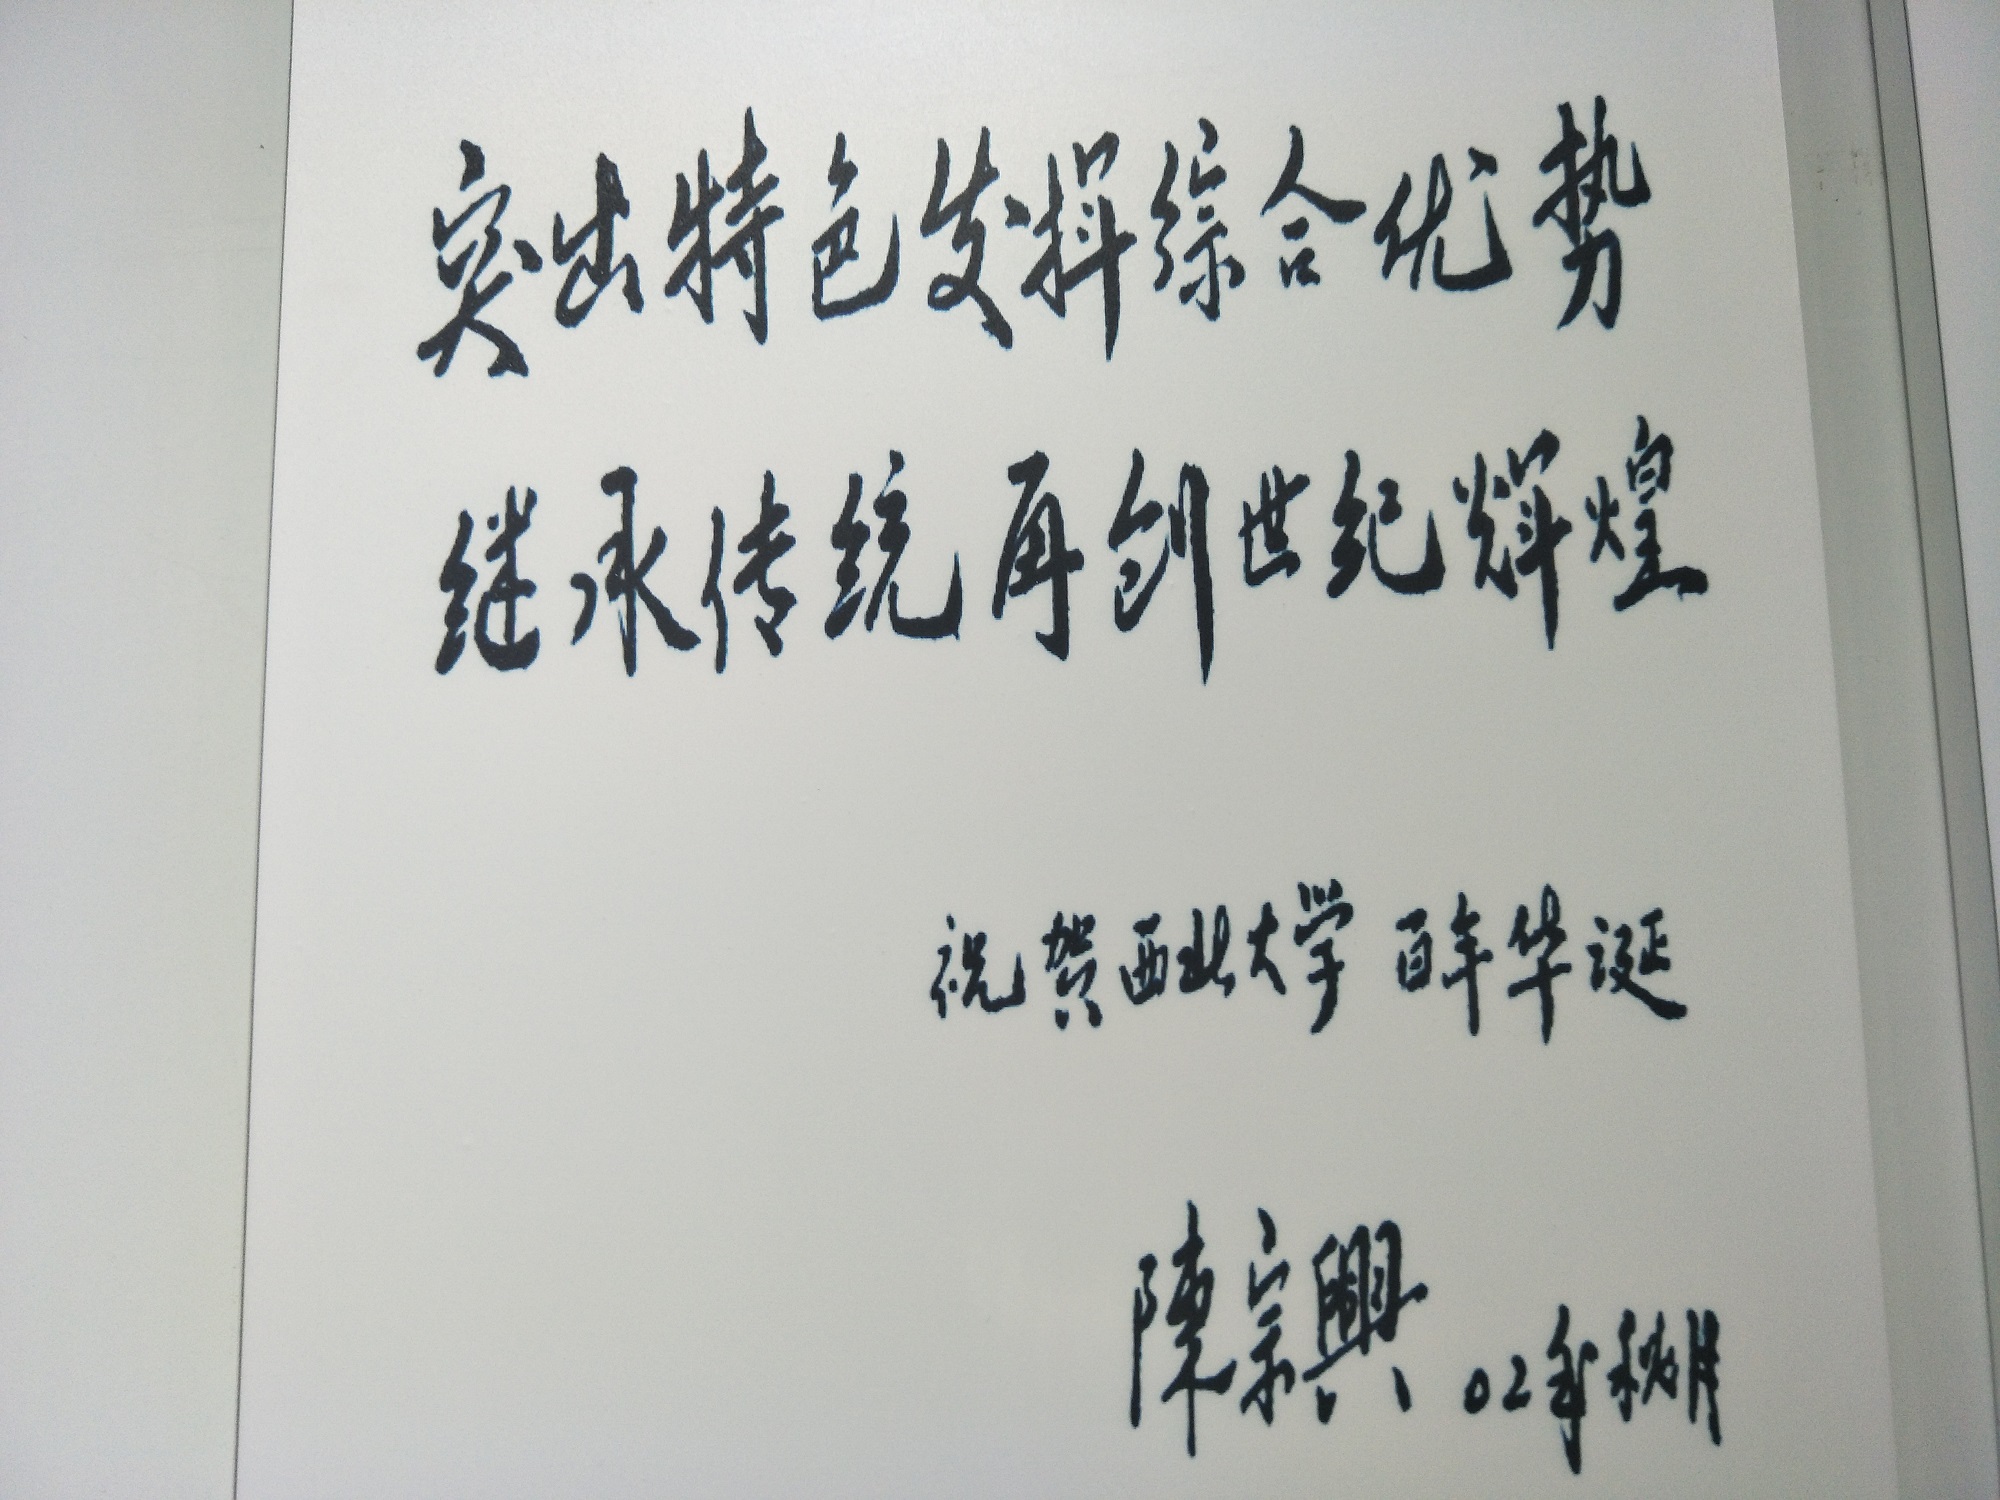 突出特色发挥综合优势
继承传统再创世纪辉煌
祝贺西北大学百年华诞
陳宗興 02年秋月